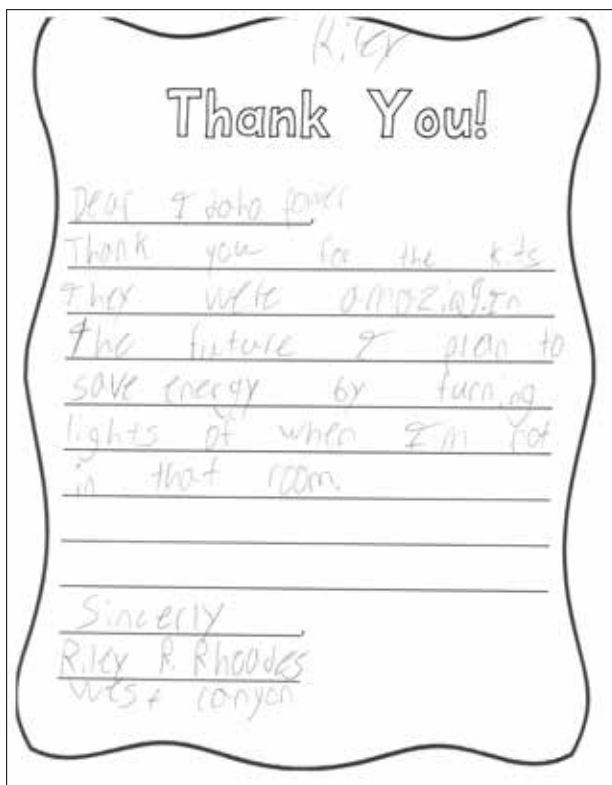 Riley
Thank You!
Dear Idaho Power
Thank you for the kits
They were amazing. In
the future I plan to
save energy by turning
lights of when I'm not
in that room.
Sincerly,
Riley R. Rhoades
West canyon